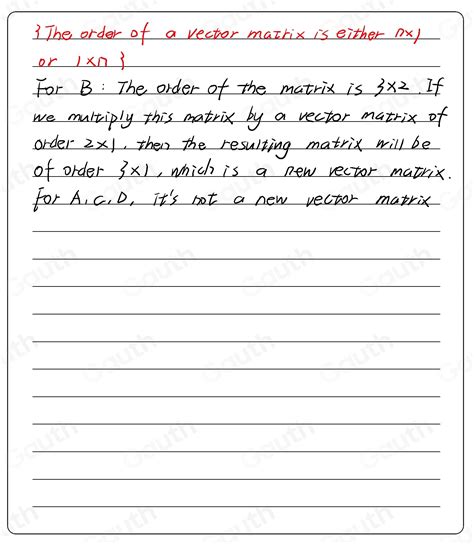 {The order of a vector matrix is either n×1
or 1×n}
For B: The order of the matrix is 3×2. If
we multiply this matrix by a vector matrix of
order 2×1, then the resulting matrix will be
of order 3×1, which is a new vector matrix.
For A, C, D, it's not a new vector matrix
Gauth
Gauth
Gauth
Gauth
Gauth
Gauth
Gauth
Gauth